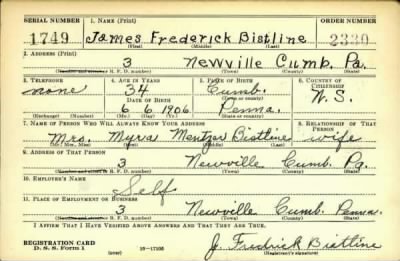 SERIAL NUMBER 1. NAME (Print) ORDER NUMBER
1749 James Frederick Bistline 2330
(First) (Middle) (Last)
2. ADDRESS (Print)
3 Newville Cumb. Pa.
(Number and street or R. F. D. number) (Town) (County) (State)
3. TELEPHONE 4. AGE IN YEARS 5. PLACE OF BIRTH 6. COUNTRY OF CITIZENSHIP
none 34 Cumb. U. S.
DATE OF BIRTH (Town or county)
6 6 1906. Penna.
(Exchange) (Number) (Mo.) (Day) (Yr.) (State or country)
7. NAME OF PERSON WHO WILL ALWAYS KNOW YOUR ADDRESS 8. RELATIONSHIP OF THAT PERSON
Mrs. Myra Mentzer Bistline wife
(Mr., Mrs., Miss) (First) (Middle) (Last)
9. ADDRESS OF THAT PERSON
3 Newville Cumb. Pa.
(Number and street or R. F. D. number) (Town) (County) (State)
10. EMPLOYER'S NAME
Self
11. PLACE OF EMPLOYMENT OR BUSINESS
3 Newville Cumb. Penna.
(Number and street or R. F. D. number) (Town) (County) (State)
I AFFIRM THAT I HAVE VERIFIED ABOVE ANSWERS AND THAT THEY ARE TRUE.
REGISTRATION CARD
D. S. S. Form 1 (over) 16-17105 J. Fredrick Bistline
(Registrant's signature)